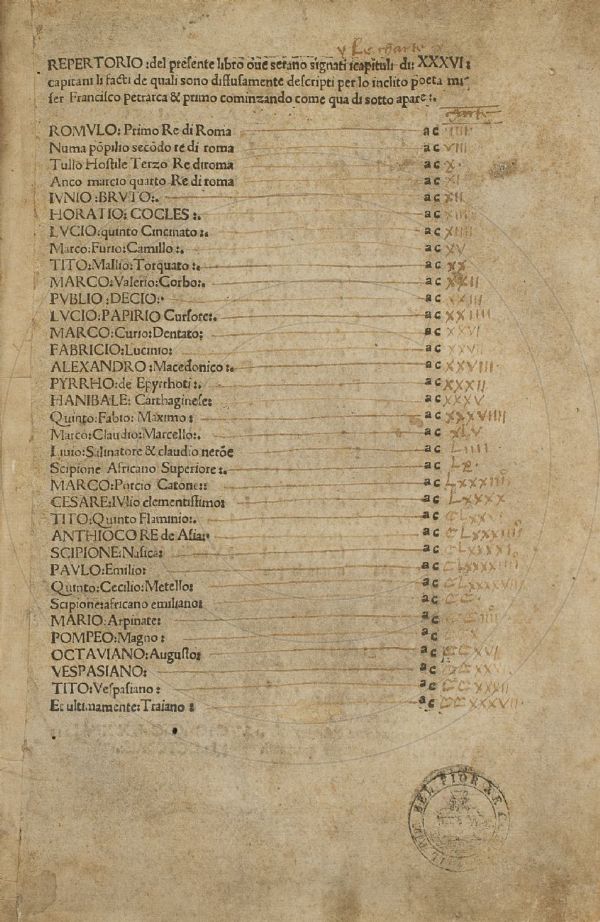 Le charte
REPERTORIO :del presente libro oue serano signati icapituli di: XXXVI:
capitani li facti de quali sono diffusamente descripti per lo inclito poeta mi-
ser Francisco petrarca & primo cominzando come qua di sotto apare :.
charte
ROMVLO: Primo Re di Roma ac IIII
Numa põpilio secõdo re di roma ac VIII
Tullo Hostile Terzo Re diroma ac X
Anco marcio quarto Re di roma ac XI
IVNIO :BRVTO:. ac XII
HORATIO: COCLES :. ac XIII
LVCIO: quinto Cincinato :. ac XIIII
Marco: Furio: Camillo :. ac XV
TITO: Mallio: Torquato :. ac XX
MARCO: Valerio: Corbo:. ac XXII
PVBLIO :DECIO:· ac XXIII
LVCIO: PAPIRIO Cursore:. ac XXIIII
MARCO: Curio: Dentato: ac XXVI
FABRICIO: Lucinio: ac XXVII
ALEXANDRO :Macedonico :. ac XXVIII
PYRRHO: de Epyrrhoti :. ac XXXII
HANIBALE: Carthaginese: ac XXXV
Quinto: Fabio: Maximo : ac XXXVIIII
Marco: Claudio: Marcello:. ac XLV
Liuio: Salinatore & claudio nerõe ac LIIII
Scipione Africano Superiore :. ac
MARCO: Portio Catone: ac LXXXIII
CESARE: IVlio clementissimo: ac LXXXX
TITO: Quinto Flaminio:. ac
ANTHIOCO RE de Asia:· ac
SCIPIONE: Nasica: ac
PAVLO: Emilio: ac
Quinto: Cecilio: Metello: ac
Scipione: africano emiliano: ac CC
MARIO: Arpinate: ac
POMPEO: Magno : ac CCX
OCTAVIANO: Augusto: ac CCXVI
VESPASIANO: ac
TITO: Vespasiano : ac CCXXXII
Et ultimamente: Traiano : ac CCXXXVII